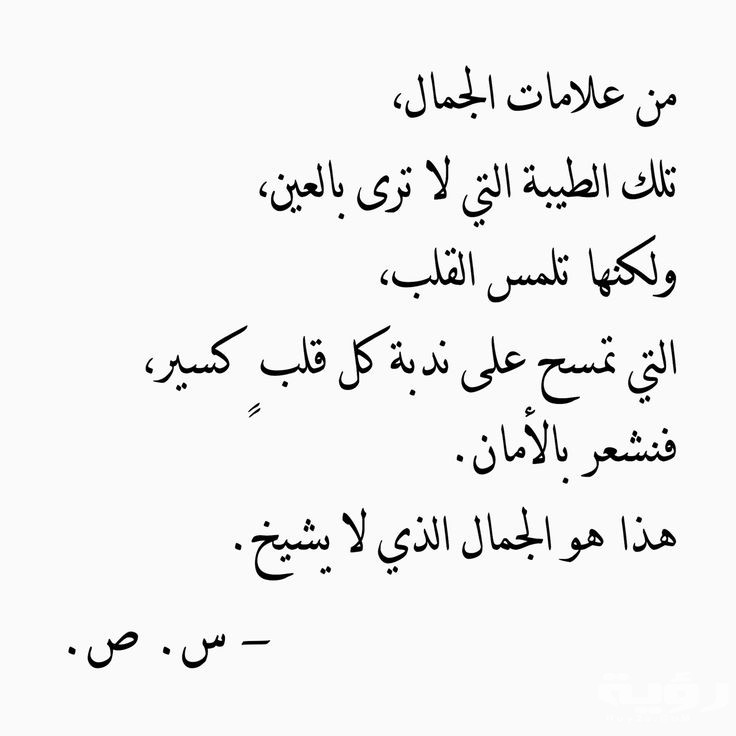 من علامات الجمال،
تلك الطيبة التي لا ترى بالعين،
ولكنها تلمس القلب،
التي تمسح على ندبة كل قلبٍ كسير،
فنشعر بالأمان.
هذا هو الجمال الذي لا يشيخ.
– س. ص.
رؤية